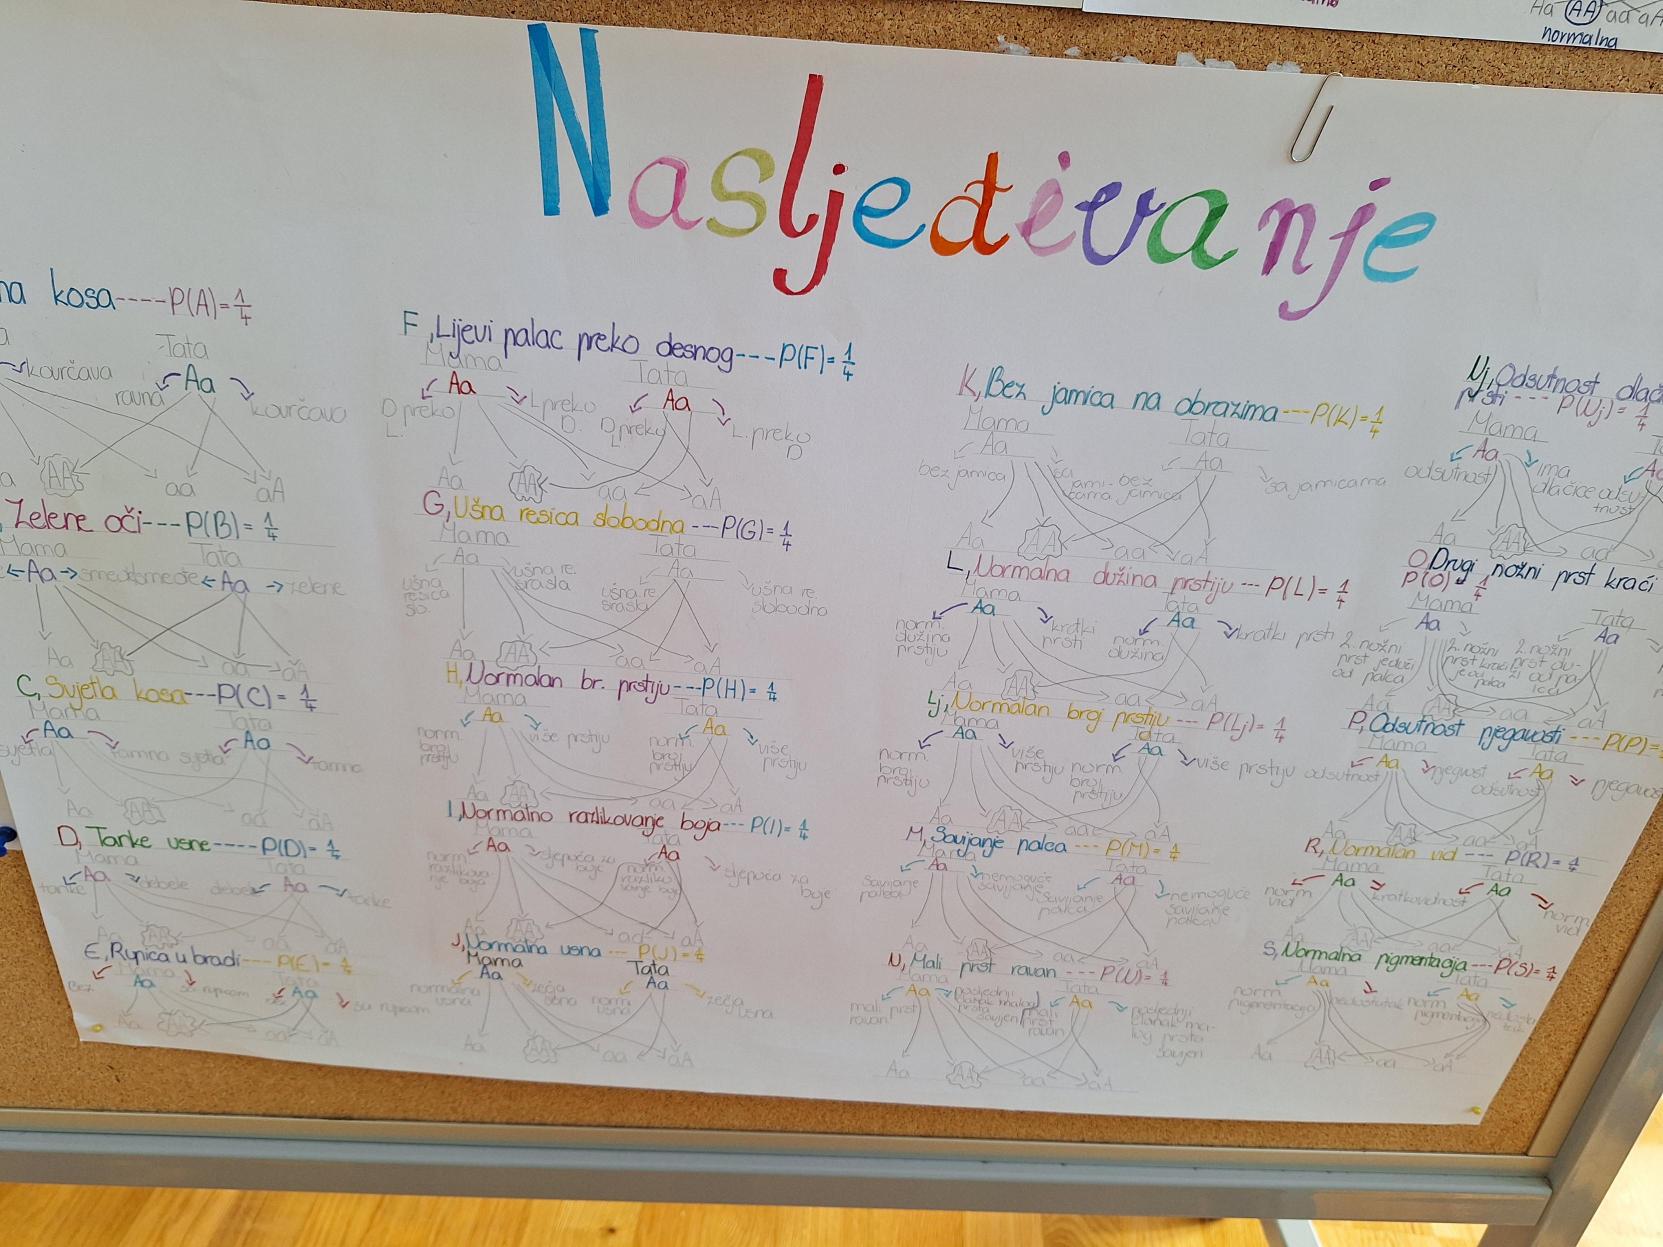 Aa AA aa aA
normalna
Nasljeđivanje
kosa----P(A)=1/4
Tata
kovrčava
Aa
ravna
kovrčava
AA aa aA
Zelene oči---P(B)=1/4
Mama Tata
Aa smeđe smeđe Aa zelene
Aa AA aa aA
C, Svjetla kosa---P(C)=1/4
Mama Tata
Aa Aa
svjetla tamna svjetla tamna
Aa AA aa aA
D, Tanke usne-----P(D)=1/4
Mama Tata
Aa Aa
tanke debele debele tanke
AA aa aA
E, Rupica u bradi----P(E)=1/4
Mama Tata
Aa Aa
bez sa rupicom sa rupicom
Aa AA aa aA
F, Lijevi palac preko desnog---P(F)=1/4
Mama Tata
Aa Aa
D preko L. L preko D. D preko L. L. preko D
Aa AA aa aA
G, Ušna resica slobodna---P(G)=1/4
Mama Tata
Aa Aa
ušna resica slo. ušna re. srasla ušna re. srasla ušna re. slobodna
Aa AA aa aA
H, Normalan br. prstiju---P(H)=1/4
Mama Tata
Aa Aa
norm. broj prstiju više prstiju norm. broj prstiju više prstiju
Aa AA aa aA
I, Normalno razlikovanje boja---P(I)=1/4
Mama Tata
Aa Aa
norm. razlikovanje boja sljepoća za boje norm. razlikovanje boja sljepoća za boje
Aa AA aa aA
J, Normalna usna---P(J)=1/4
Mama Tata
Aa Aa
normalna usna zečja usna norm. usna zečja usna
Aa AA aa aA
K, Bez jamica na obrazima---P(K)=1/4
Mama Tata
Aa Aa
bez jamica sa jamicama bez jamica sa jamicama
Aa AA aa aA
L, Normalna dužina prstiju---P(L)=1/4
Mama Tata
Aa Aa
norm. dužina prstiju kratki prsti norm. dužina kratki prsti
Aa AA aa aA
Lj, Normalan broj prstiju---P(Lj)=1/4
Mama Tata
Aa Aa
norm. broj prstiju više prstiju norm. broj prstiju više prstiju
Aa AA aa aA
M, Savijanje palca---P(M)=1/4
Mama Tata
Aa Aa
savijanje palca nemoguće savijanje savijanje palca nemoguće savijanje palca
Aa AA aa aA
N, Mali prst ravan----P(N)=1/4
Mama Tata
Aa Aa
mali prst ravan posljednji članak malog prsta savijen mali prst ravan posljednji članak malog prsta savijen
Aa AA aa aA
Nj, Odsutnost
prsti---- P(Nj)=1/4
Mama
Aa
odsutnost ima dlačice odsutnost
Aa AA aa
O, Drugi nožni prst kraći
P(O)=1/4
Mama Tata
Aa Aa
2. nožni prst 2. nožni prst kraći 2. nožni prst od palca
Aa AA aa aA
P, Odsutnost pjegavosti---P(P)=
Mama Tata
Aa Aa
odsutnost pjegavost odsutnost pjegavost
Aa AA aa aA
R, Normalan vid---P(R)=1/4
Mama Tata
Aa Aa
norm vid kratkovidnost norm. vid
Aa AA aa aA
S, Normalna pigmentacija---P(S)=1/4
Mama Tata
Aa Aa
norm. pigmentacija nedostatak norm. pigmentacija
Aa AA aa aA